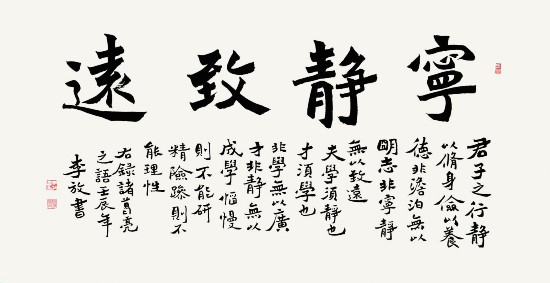 寧靜致遠
君子之行靜
以脩身儉以養
德非澹泊無以
明志非寧靜
無以致遠
夫學須靜也
才須學也
非學無以廣
才非靜無以
成學慆慢
則不能研
精險躁則不
能理性
右錄諸葛亮
之語壬辰年
李放書